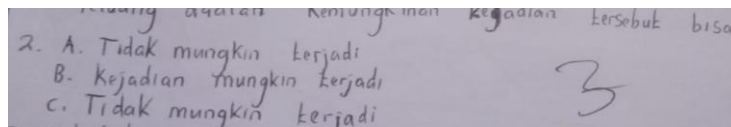 Peluang adalah kemungkinan kejadian tersebut bisa
2. A. Tidak mungkin terjadi
B. Kejadian mungkin terjadi
C. Tidak mungkin terjadi
3